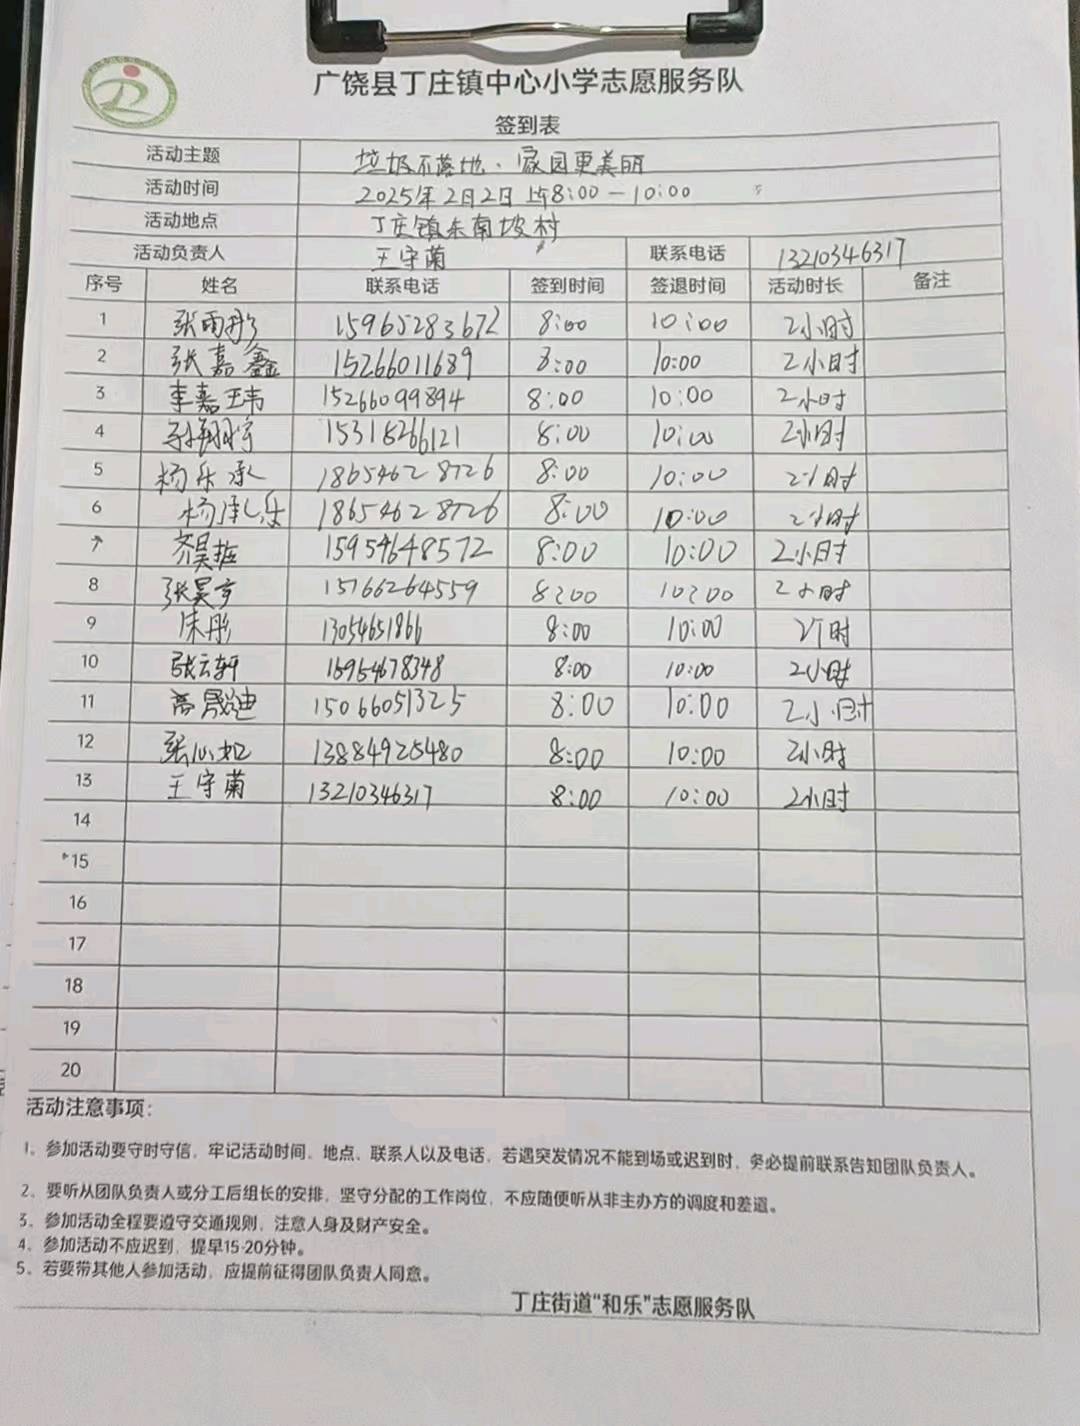 广饶县丁庄镇中心小学志愿服务队
签到表
活动主题 垃圾不落地·家园更美丽
活动时间 2025年2月2日 上午8:00—10:00
活动地点 丁庄镇东南坡村
活动负责人 王守菊 联系电话 13210346317
序号 姓名 联系电话 签到时间 签退时间 活动时长 备注
1 张雨彤 15965283672 8:00 10:00 2小时
2 张嘉鑫 15266011689 8:00 10:00 2小时
3 李嘉玮 15266099894 8:00 10:00 2小时
4 15318266121 8:00 10:00 2小时
5 杨乐承 18654628726 8:00 10:00 2小时
6 杨承乐 18654628726 8:00 10:00 2小时
7 15954648572 8:00 10:00 2小时
8 张昊宇 15766264559 8:00 10:00 2小时
9 朱彤 13054651866 8:00 10:00 2小时
10 张云轩 15954678348 8:00 10:00 2小时
11 高晟迪 15066051325 8:00 10:00 2小时
12 张心如 13884925480 8:00 10:00 2小时
13 王守菊 13210346317 8:00 10:00 2小时
14
15
16
17
18
19
20
活动注意事项：
1、参加活动要守时守信，牢记活动时间、地点、联系人以及电话，若遇突发情况不能到场或迟到时，务必提前联系告知团队负责人。
2、要听从团队负责人或分工后组长的安排，坚守分配的工作岗位，不应随便听从非主办方的调度和差遣。
3、参加活动全程要遵守交通规则，注意人身及财产安全。
4、参加活动不应迟到，提早15-20分钟。
5、若要带其他人参加活动，应提前征得团队负责人同意。
丁庄街道“和乐”志愿服务队